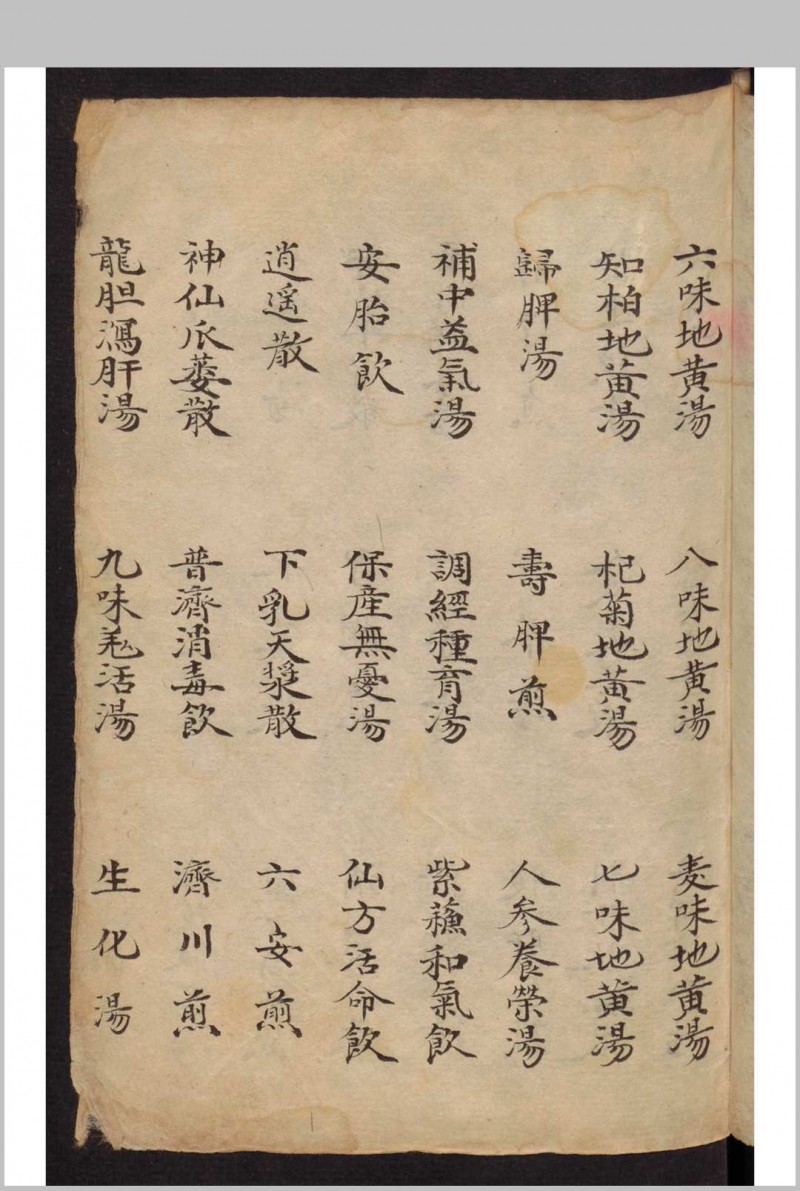 六味地黄湯 八味地黄湯 麦味地黄湯
知柏地黄湯 杞菊地黄湯 七味地黄湯
歸脾湯 壽脾煎 人参養榮湯
補中益氣湯 調經種育湯 紫蘓和氣飲
安胎飲 保産無憂湯 仙方活命飲
逍遥散 下乳天漿散 六安煎
神仙瓜蒌散 普濟消毒飲 濟川煎
龍胆瀉肝湯 九味羗活湯 生化湯